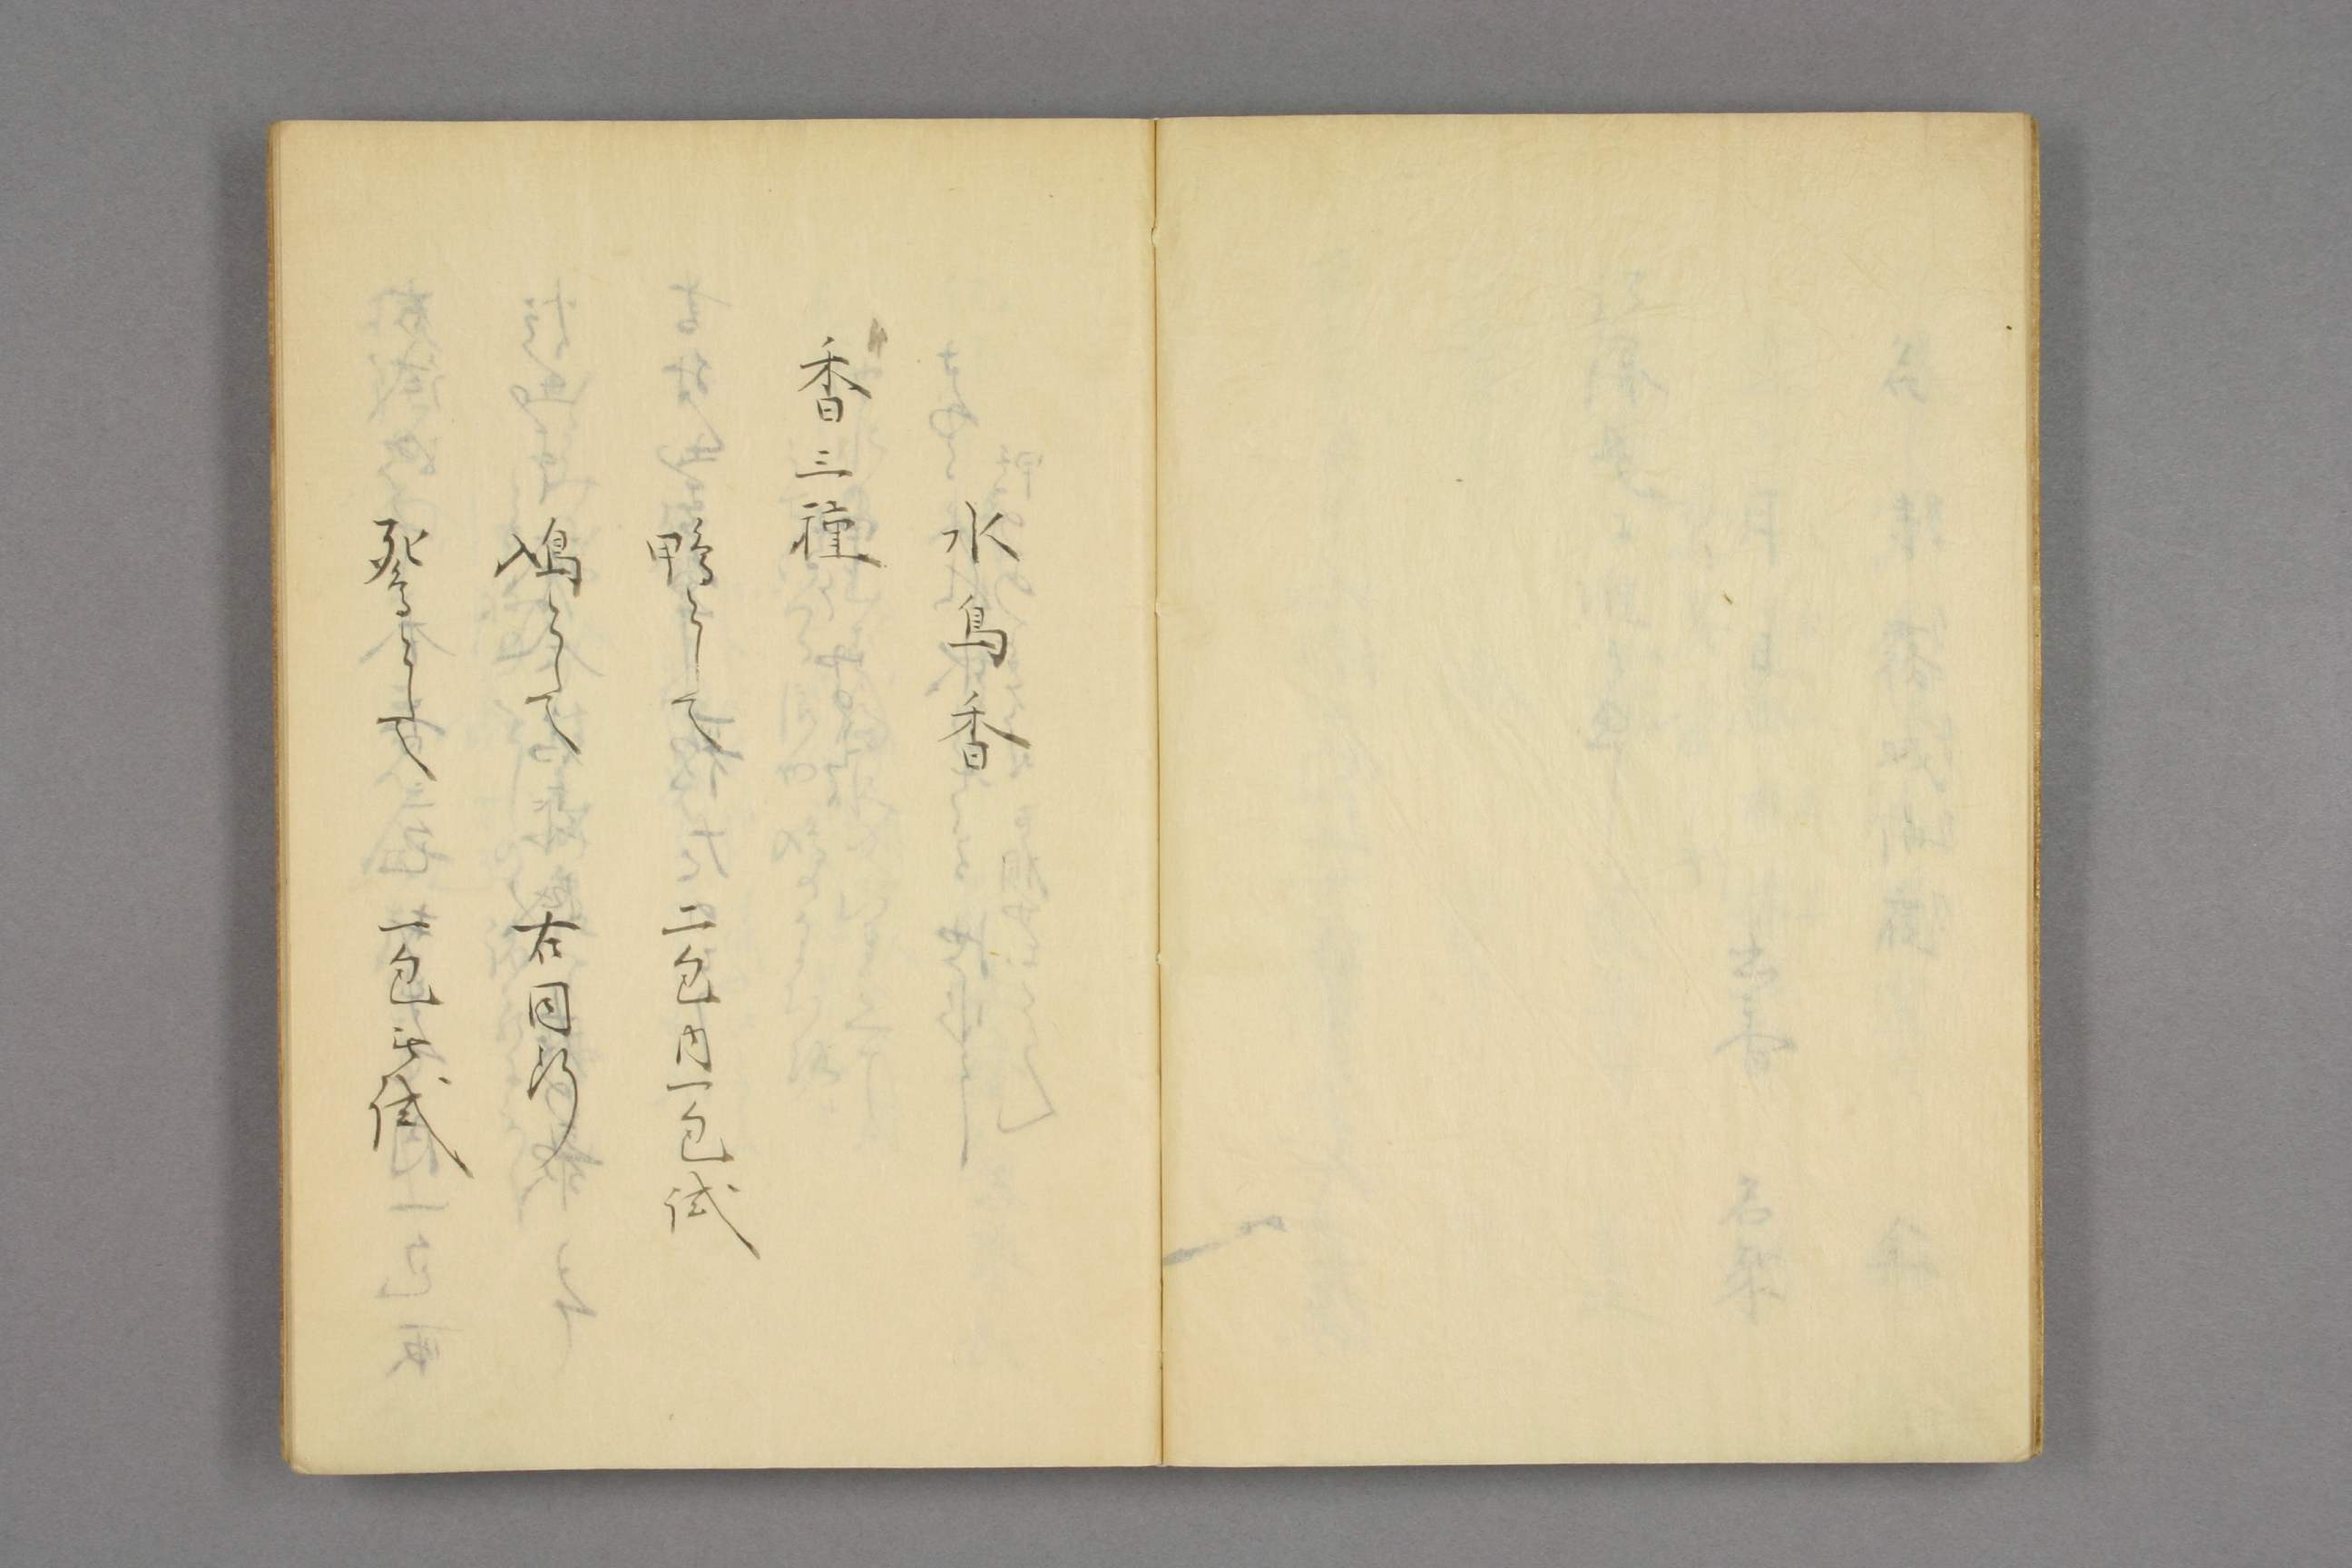 水鳥香
香三種
鴨として 二包内一包試
鳰として 右同断
鴛として 一包無試